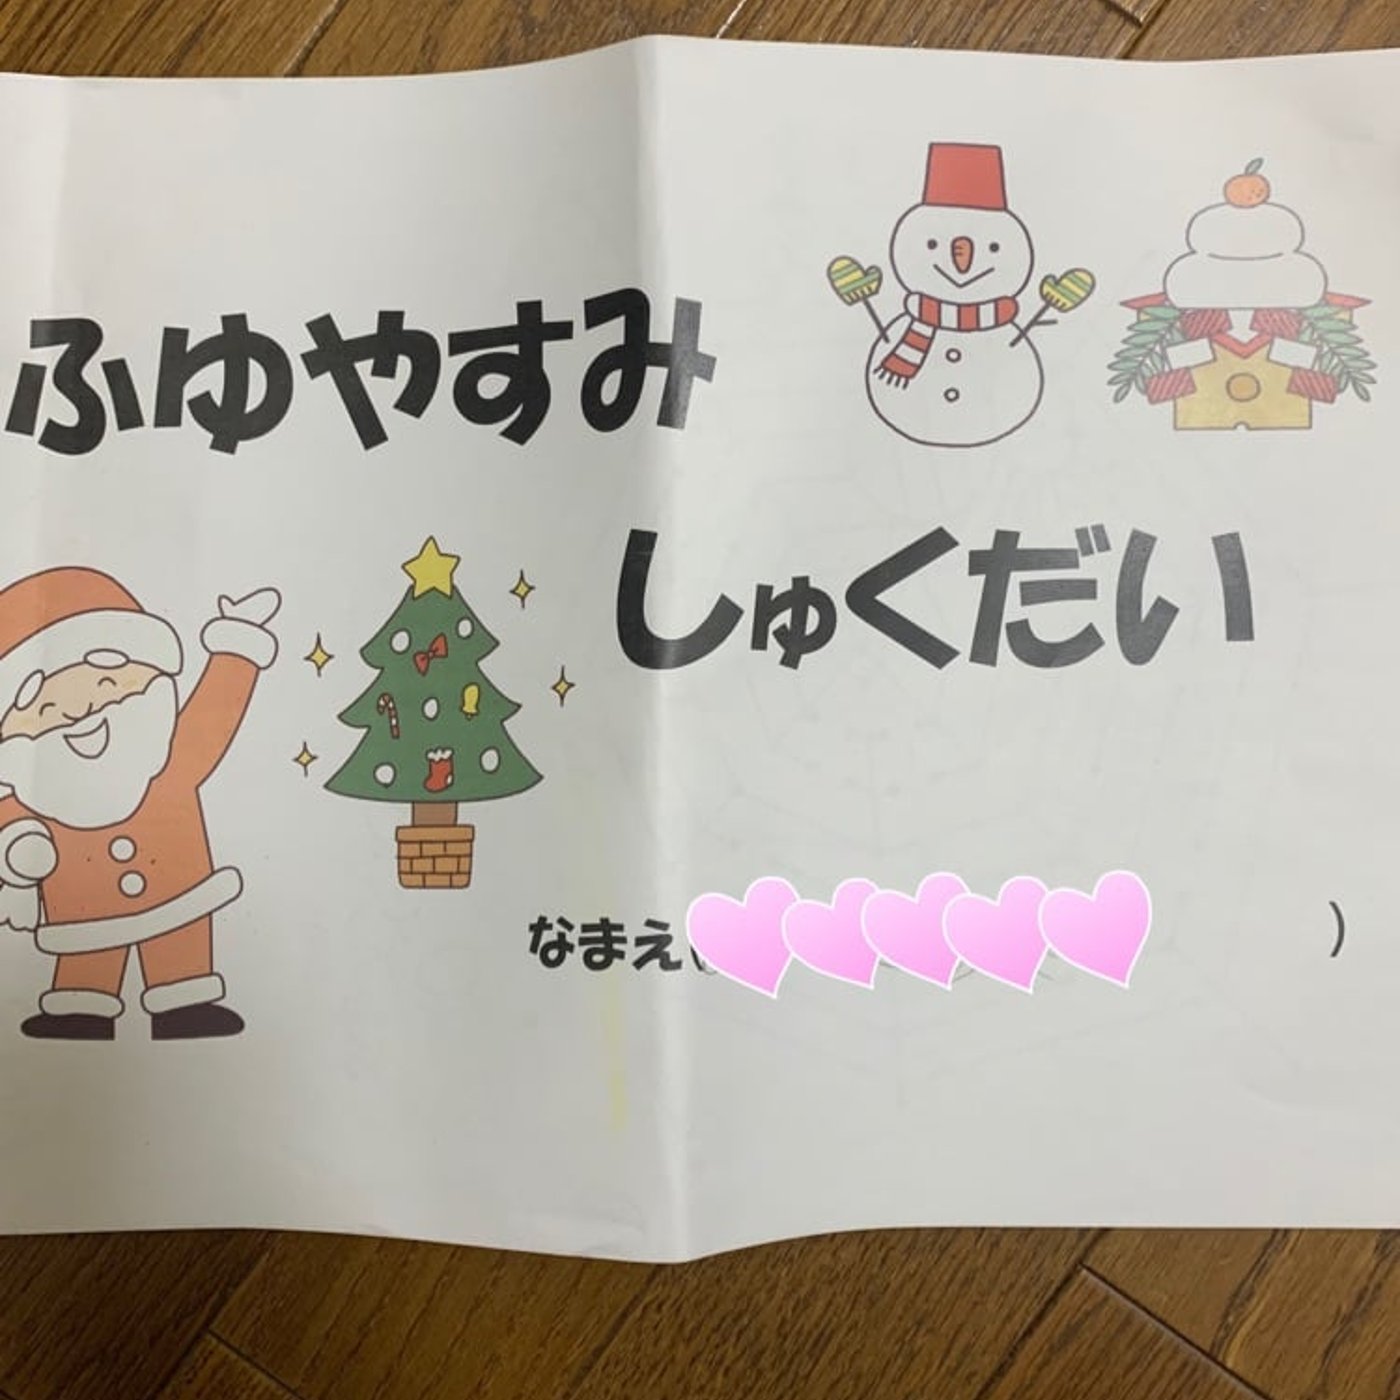 ふゆやすみ
しゅくだい
なまえ( )